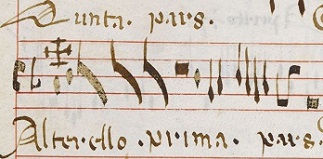 Qunta. pars.
Alterello .prima. pars.